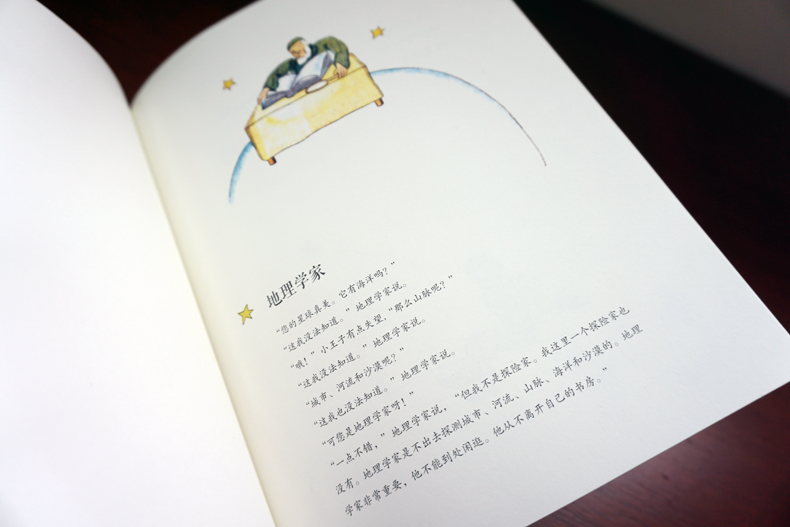 地理学家
“您的星球真美。它有海洋吗？”
“这我没法知道。”地理学家说。
“哦！”小王子有点失望，“那么山脉呢？”
“这我没法知道。”地理学家说。
“城市、河流和沙漠呢？”
“这我也没法知道。”地理学家说。
“可您是地理学家呀！”
“一点不错，”地理学家说，“但我不是探险家。我这里一个探险家也
没有。地理学家是不出去探测城市、河流、山脉、海洋和沙漠的。地理
学家非常重要，他不能到处闲逛。他从不离开自己的书房。”